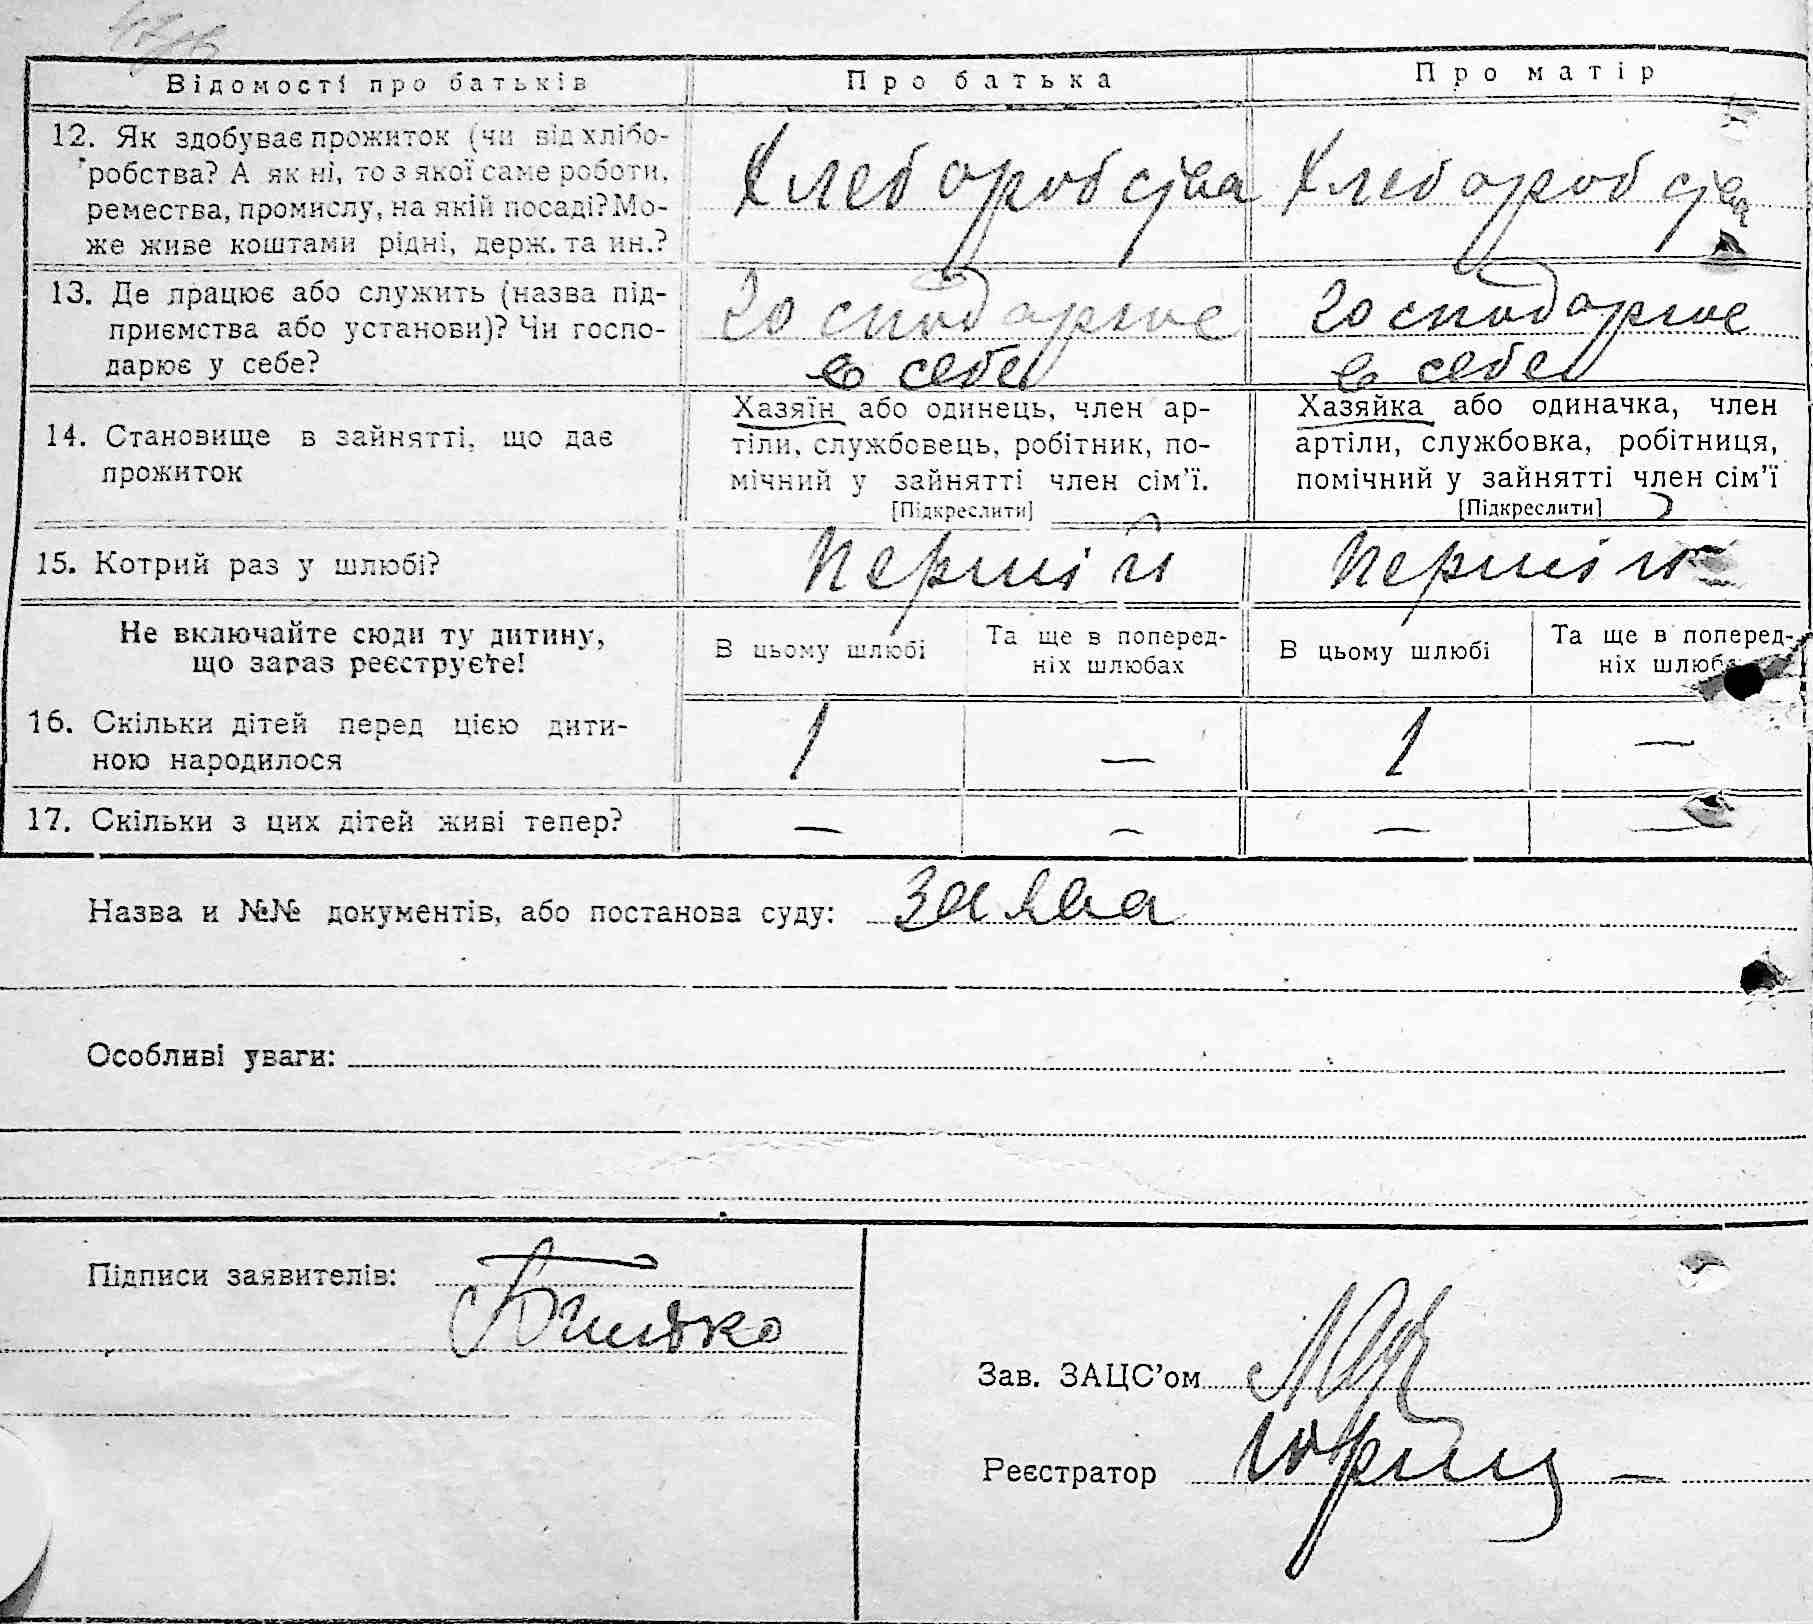 Відомості про батьків
Про батька
Про матір
12. Як здобуває прожиток (чи від хлібо-
робства? А як ні, то з якої саме роботи,
ремества, промислу, на якій посаді? Мо-
же живе коштами рідні, держ. та ин.?
Хлебаробства
Хлебаробства
13. Де працює або служить (назва під-
приємства або установи)? Чи госпо-
дарює у себе?
господарює
в себе
господарює
в себе
14. Становище в зайнятті, що дає
прожиток
Хазяїн або одинець, член ар-
тіли, службовець, робітник, по-
мічний у зайнятті член сім'ї.
[Підкреслити]
Хазяйка або одиначка, член
артіли, службовка, робітниця,
помічний у зайнятті член сім'ї
[Підкреслити]
15. Котрий раз у шлюбі?
перший
перший
Не включайте сюди ту дитину,
що зараз реєструєте!
В цьому шлюбі
Та ще в поперед-
ніх шлюбах
В цьому шлюбі
Та ще в поперед-
ніх шлюбах
16. Скільки дітей перед цією дити-
ною народилося
1 — 1 —
17. Скільки з цих дітей живі тепер?
— — — —
Назва и №№ документів, або постанова суду: заява
Особливі уваги:
Підписи заявителів:
Зав. ЗАЦС'ом
Реєстратор